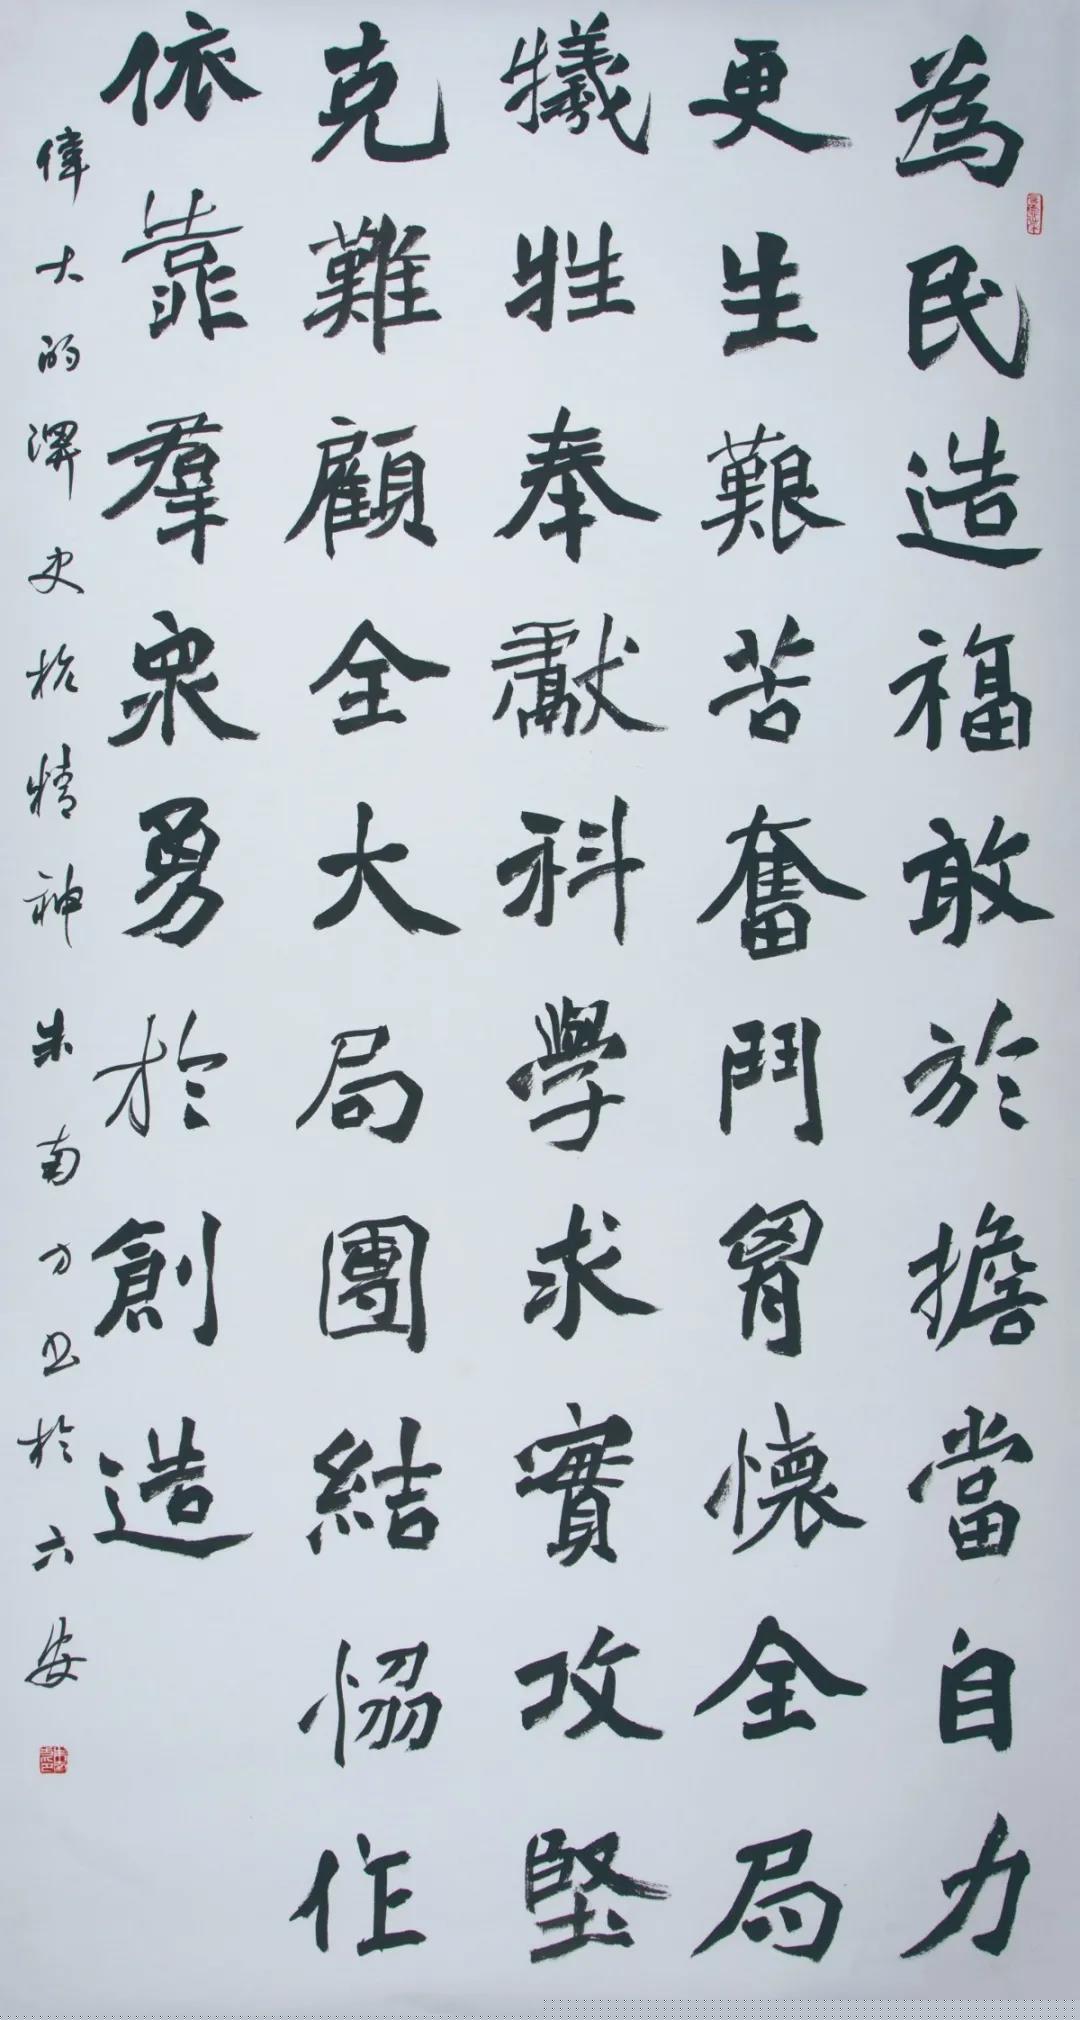 為民造福敢於擔當自力
更生艱苦奮鬥胷懷全局
犧牲奉獻科學求實攻堅
克難顧全大局團結恊作
依靠羣衆勇於創造
偉大的淠史杭精神 朱南方书於六安